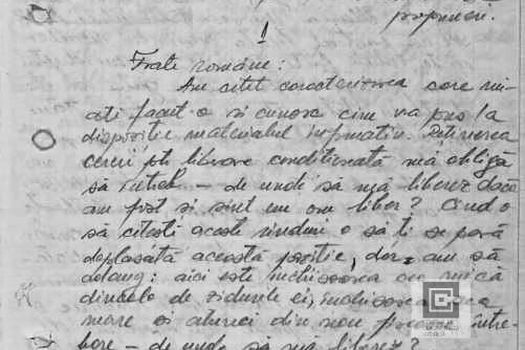 propuneri.
1
Frate române:
Am citit caracterizarea care mi-
ati facut-o si cunosc cine va pus la
dispozitie materialul informativ. Retinerea
cererii de liberare conditionată mă obligă
să întreb – de unde să mă liberez dacă
am fost si sint un om liber? Cind o
să citesti aceste rinduri o să ti se pară
deplasată această pozitie, dar am să
adaug: aici este închisoarea cea mică
dincolo de zidurile ei, închisoarea cea
mare si atunci din nou între-
bare – de unde să mă liberez?